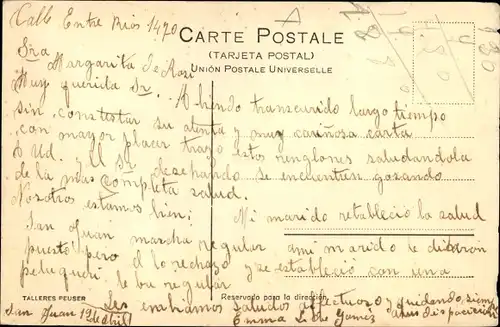 Calle Entre Rios 1470
CARTE POSTALE
(TARJETA POSTAL)
UNION POSTALE UNIVERSELLE
Sra Margarita de Rosi
Muy querida Sr. Abiendo transcurido largo tiempo
sin contestar su atenta y muy cariñosa carta
con mayor placer trazo estos renglones saludandola
a Ud. y el Sr. deseando se encuentren gosando
de la mas completa salud.
Nosotros estamos bien; Mi marido retableció la salud
San Juan marcha regular a mi marido le dieron
puesto pero el lo rechazo y se estableció con una
peluqueri le va regular
TALLERES PEUSER
Reservado para la dirección
Les enviamos saludos afectuosos y quedando siempre
San Juan 12 de abril Emma L. de Gomez a sus disposicion